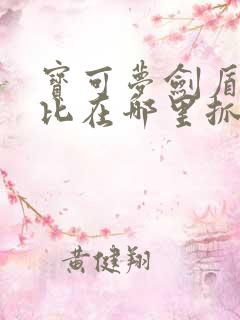 寶可夢劍盾
比在哪里抓
黃健翔